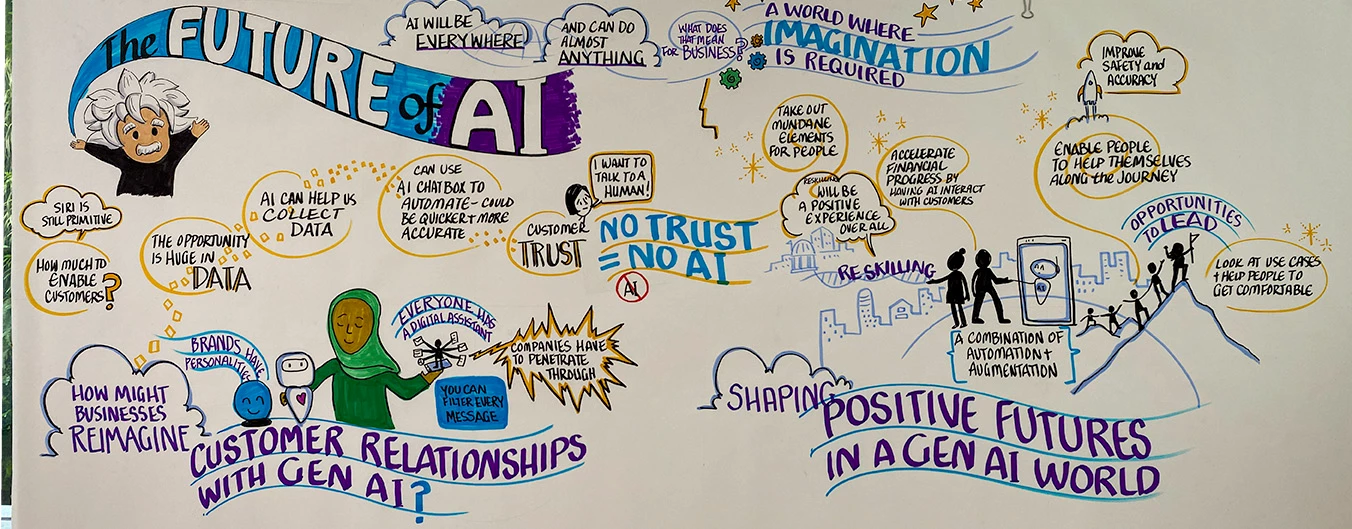 The FUTURE of AI
AI WILL BE
EVERYWHERE
AND CAN DO
ALMOST
ANYTHING
WHAT DOES
THAT MEAN
FOR BUSINESS?
A WORLD WHERE
IMAGINATION
IS REQUIRED
SIRI IS
STILL PRIMITIVE
HOW MUCH TO
ENABLE
CUSTOMERS?
THE OPPORTUNITY
IS HUGE IN
DATA
AI CAN HELP US
COLLECT
DATA
CAN USE
AI CHATBOX TO
AUTOMATE - COULD
BE QUICKER + MORE
ACCURATE
I WANT TO
TALK TO A
HUMAN!
CUSTOMER
TRUST
NO TRUST
= NO AI
AI
BRANDS HAVE
PERSONALITIES
EVERYONE HAS
A DIGITAL ASSISTANT
COMPANIES HAVE
TO PENETRATE
THROUGH
YOU CAN
FILTER EVERY
MESSAGE
HOW MIGHT
BUSINESSES
REIMAGINE
CUSTOMER RELATIONSHIPS
WITH GEN AI?
TAKE OUT
MUNDANE
ELEMENTS
FOR PEOPLE
RESKILLING
WILL BE
A POSITIVE
EXPERIENCE
OVERALL
ACCELERATE
FINANCIAL
PROGRESS BY
HAVING AI INTERACT
WITH CUSTOMERS
IMPROVE
SAFETY and
ACCURACY
ENABLE PEOPLE
TO HELP THEMSELVES
ALONG the JOURNEY
RESKILLING
AI
OPPORTUNITIES
TO LEAD
LOOK AT USE CASES
+ HELP PEOPLE TO
GET COMFORTABLE
A COMBINATION OF
AUTOMATION +
AUGMENTATION
SHAPING
POSITIVE FUTURES
IN A GEN AI WORLD